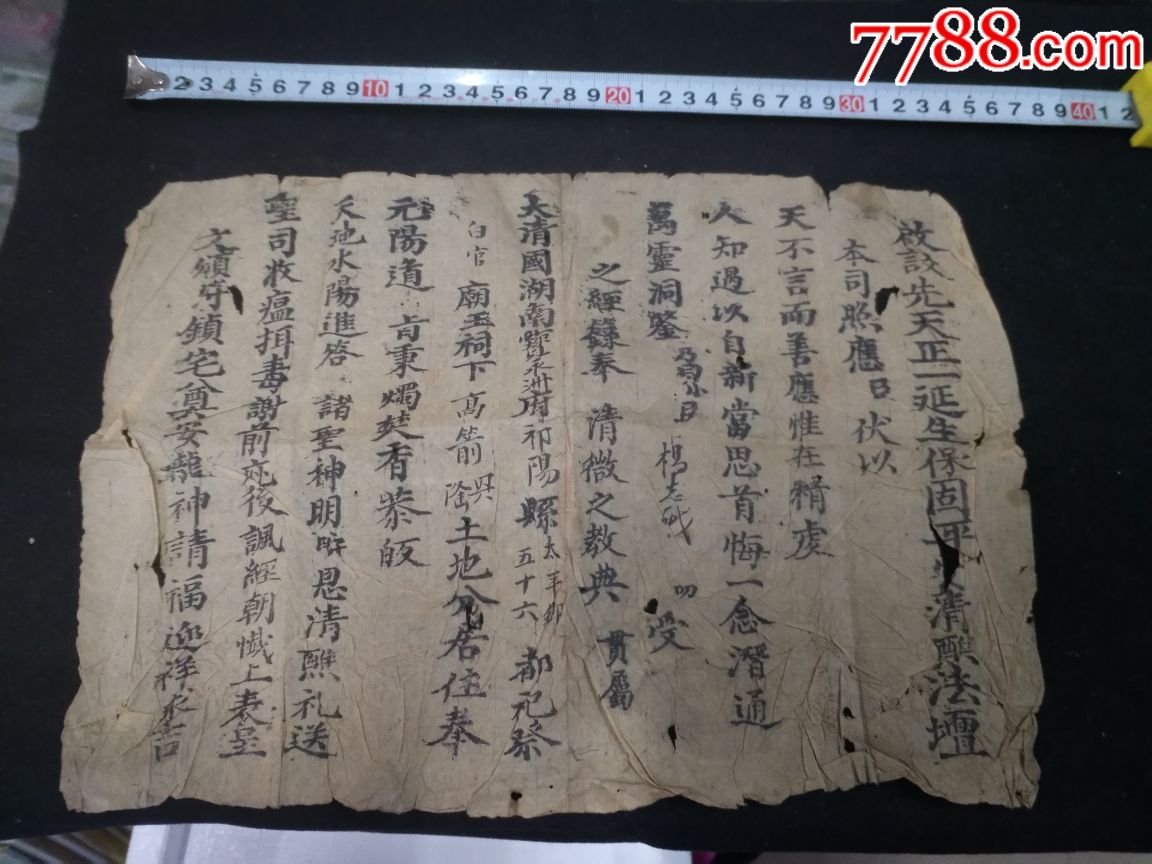 7788.com
2 3 4 5 6 7 8 9 10 1 2 3 4 5 6 7 8 9 20 1 2 3 4 5 6 7 8 9 30 1 2 3 4 5 6 7 8 9 40 1 2
啟設先天正一延生保固平安清醮法壇
本司照應臣伏以
天不言而善應惟在精虔
人知過以自新當思首悔一念潛通
萬靈洞鑒 臣楊 叨受
之經籙奉 清微之教典 貫屬
大清國湖南寶永州府祁陽縣太平鄉五十六都祀祭
白官 廟王祠下高箭興隆土地分居住奉
元陽道 肯秉燭焚香恭皈
天地水陽進答 諸聖神明 恩清醮礼送
聖司收瘟 謝前 後諷經朝懺上表呈
文頒符鎮宅奠安龍神請福迎祥 吉